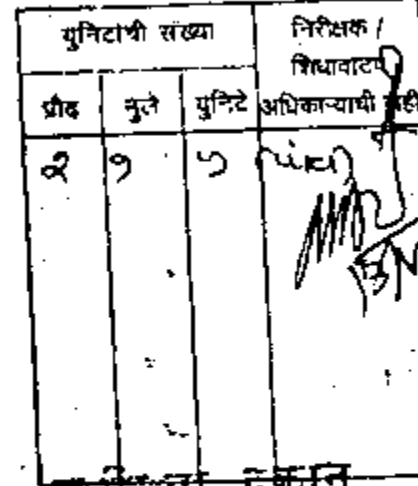 युनिटांची संख्या
निरीक्षक /
शिधावाटप
अधिकाऱ्याची सही
प्रौढ मुले युनिटे
२ १ ५